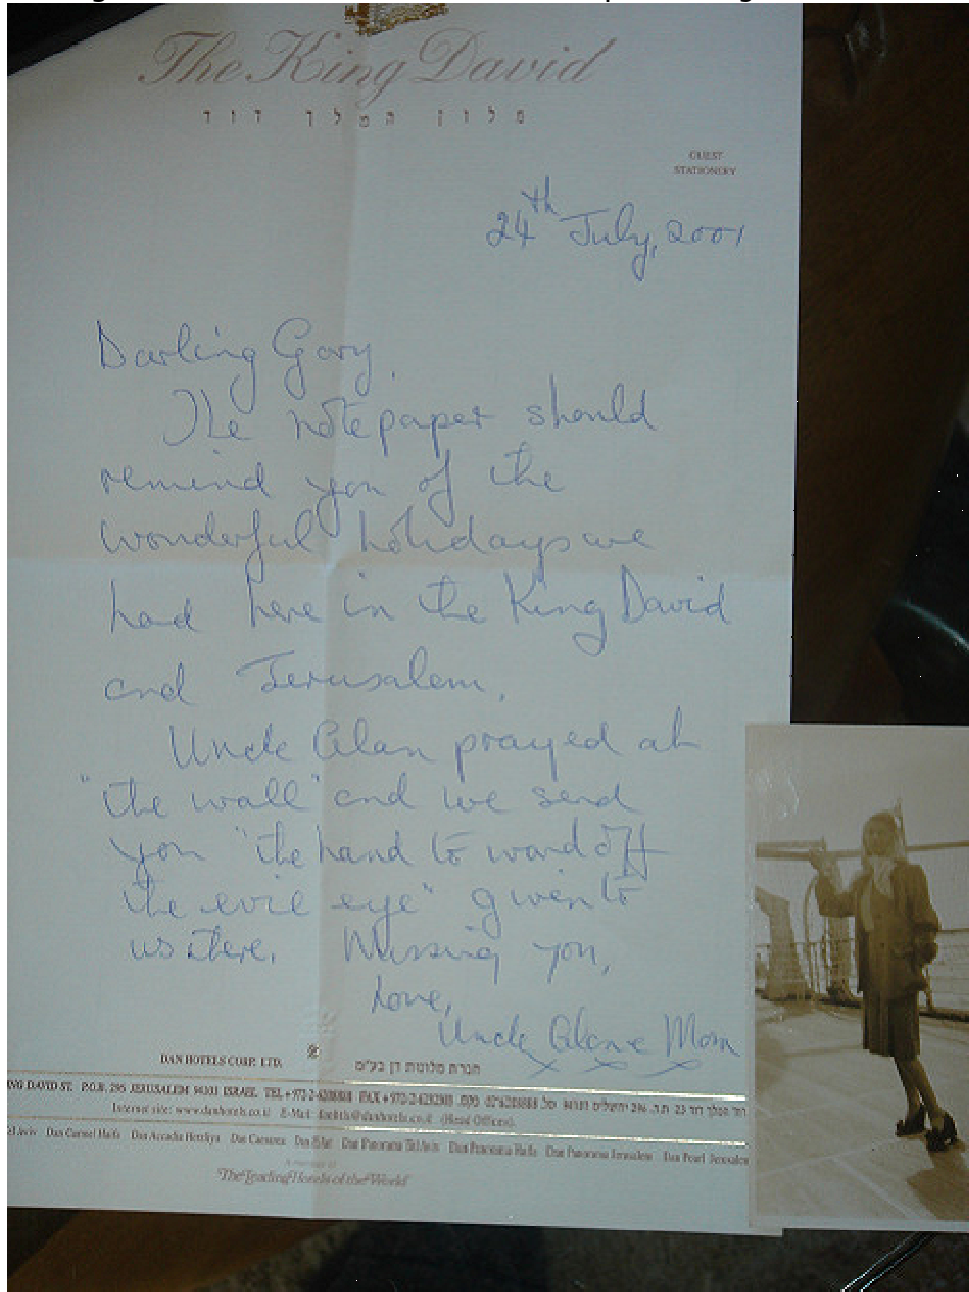 The King David
מלון המלך דוד
GUEST
STATIONERY
24th July, 2001
Darling Gary,
The notepaper should
remind you of the
wonderful holidays we
had here in the King David
and Jerusalem.
Uncle Alan prayed at
"the wall" and we send
you "the hand to ward off
the evil eye" given to
us there. Missing you,
Love,
Uncle Alan & Mom
x x x
DAN HOTELS CORP. LTD.
חברת מלונות דן בע"מ
DAVID ST. P.O.B. 295 JERUSALEM 94101 ISRAEL TEL
Internet site: www.danhotels.co.il E-Mail: (Head Offices)
Tel Aviv Dan Carmel Haifa Dan Accadia Herzliya Dan Caesarea Dan Eilat Dan Panorama Tel Aviv Dan Panorama Haifa Dan Panorama Jerusalem Dan Pearl Jerusalem
A member of
The Leading Hotels of the World